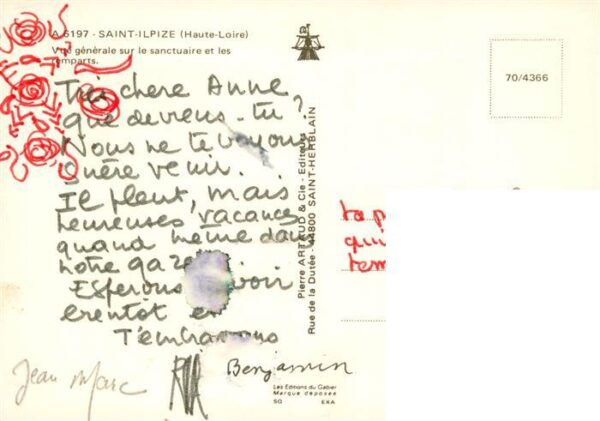 A 6197 - SAINT-ILPIZE (Haute-Loire)
Vue générale sur le sanctuaire et les
remparts.
70/4366
Très chere Anne
que deviens-tu?
Nous ne te voyons
guère venir.
Il pleut, mais
heureuses vacances
quand même dans
notre
Esperons voir
bientôt
T'embrassons
Jean Marc
Benjamin
Pierre ARTAUD & Cie - Editeurs
Rue de la Dutée - 44800 SAINT-HERBLAIN
ta p
qui
Les Editions du Gabier
Marque déposée
SO EKA